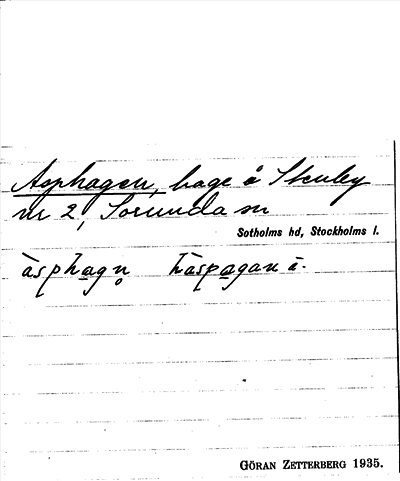 Asphagen, hage å Stenby
nr 2, Sorunda sn
Sotholms hd, Stockholms l.
àsphagn̥
GÖRAN ZETTERBERG 1935.